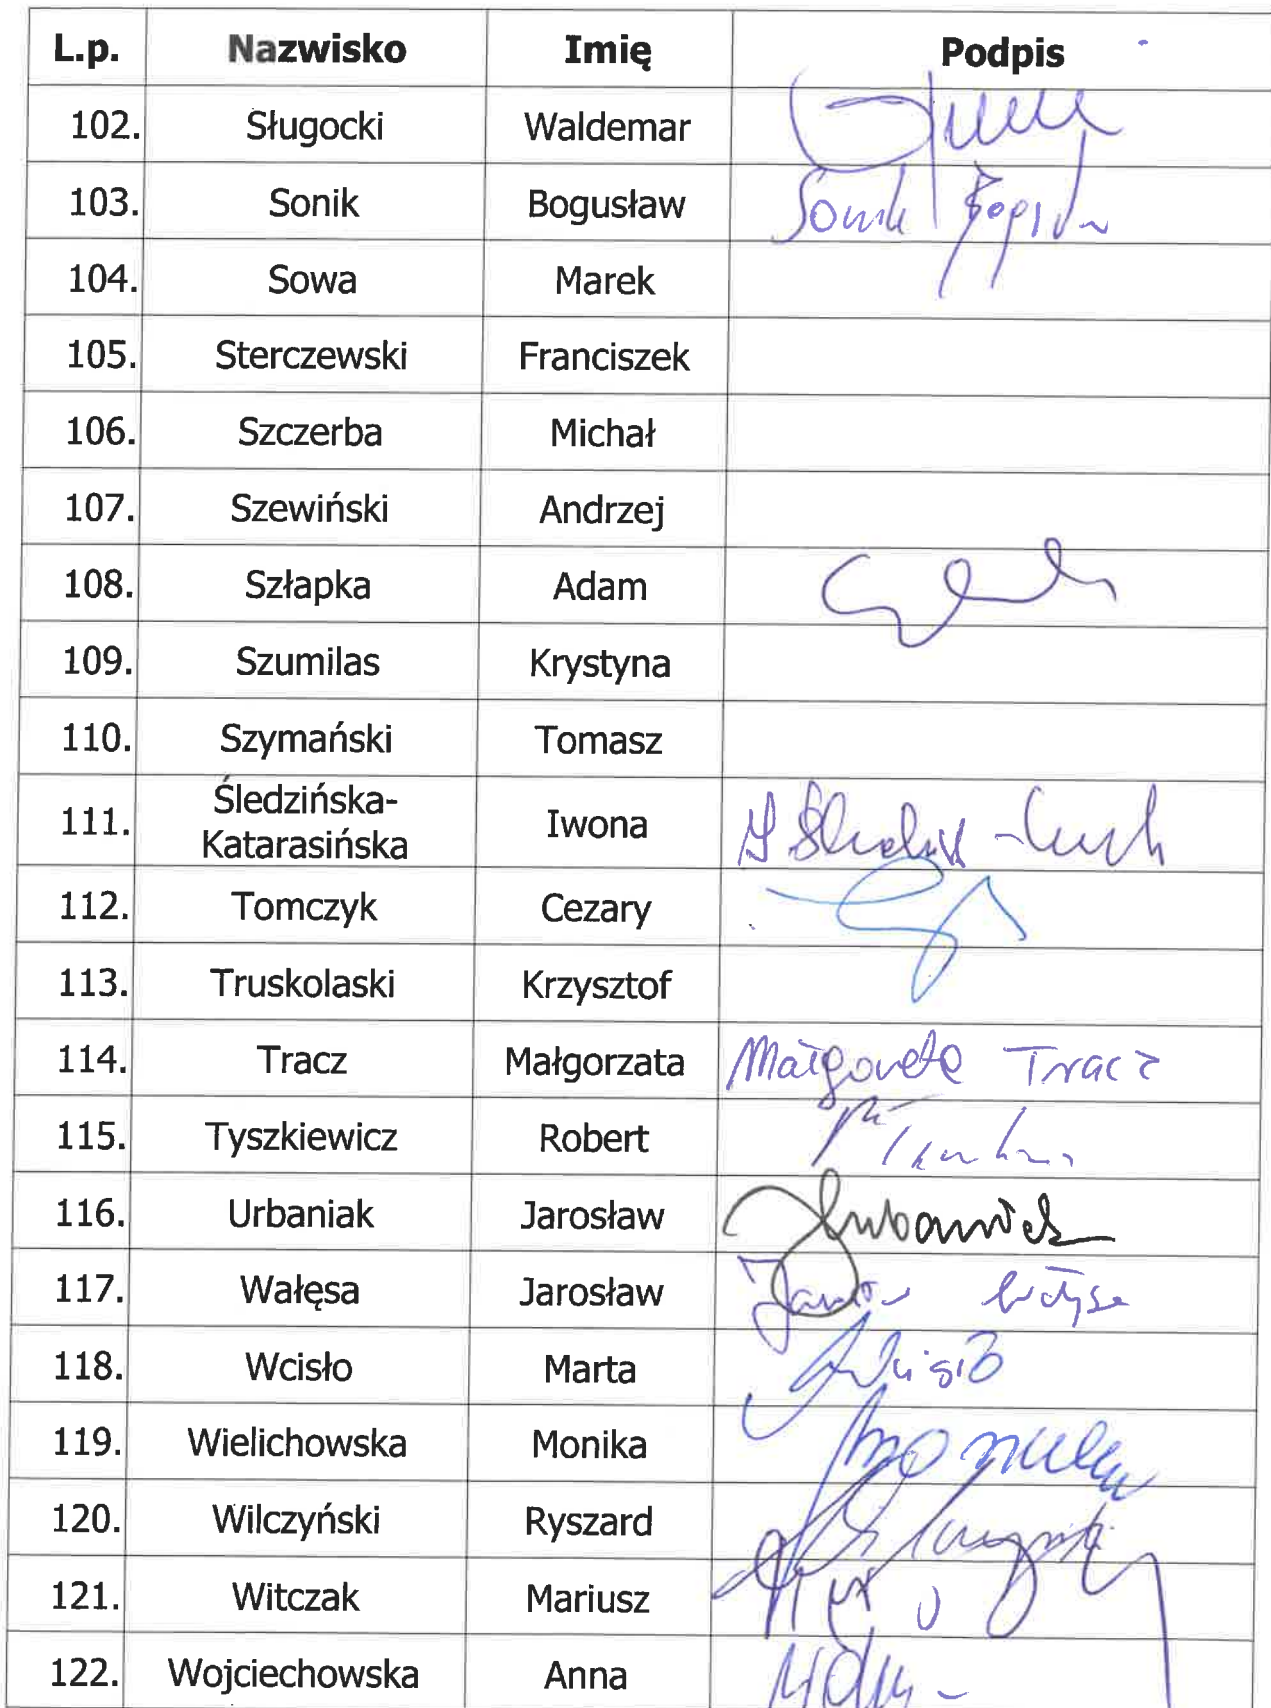 L.p. Nazwisko Imię Podpis
102. Sługocki Waldemar
103. Sonik Bogusław Sonik
104. Sowa Marek
105. Sterczewski Franciszek
106. Szczerba Michał
107. Szewiński Andrzej
108. Szłapka Adam
109. Szumilas Krystyna
110. Szymański Tomasz
111. Śledzińska-
Katarasińska Iwona
112. Tomczyk Cezary
113. Truskolaski Krzysztof
114. Tracz Małgorzata Małgorzata Tracz
115. Tyszkiewicz Robert
116. Urbaniak Jarosław Urbaniak
117. Wałęsa Jarosław Jarosław Wałęsa
118. Wcisło Marta Wcisło
119. Wielichowska Monika
120. Wilczyński Ryszard
121. Witczak Mariusz
122. Wojciechowska Anna